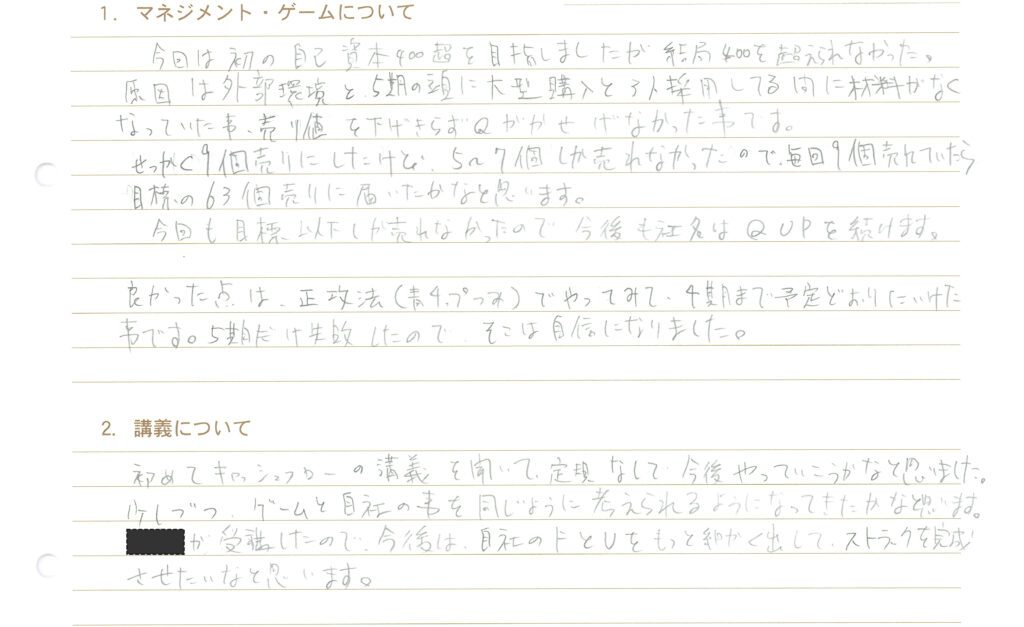 1. マネジメント・ゲームについて
今回は初の自己資本400超を目指しましたが結局400を超えられなかった。
原因は外部環境と、5期の頭に大型購入と3人採用してる間に材料がなく
なっていた事、売り値を下げきらずQがかせげなかった事です。
せっかく9個売りにしたけど、5〜7個しか売れなかったので、毎回9個売れていたら
目標の63個売りに届いたかなと思います。
今回も目標以下しか売れなかったので今後も社名はQUPを続けます。
良かった点は、正攻法(青4、プつみ)でやってみて、4期まで予定どおりにいけた
事です。5期だけ失敗したので、そこは自信になりました。
2. 講義について
初めてキャッシュフローの講義を聞いて、定規なしで今後やっていこうかなと思いました。
少しづつ、ゲームと自社の事を同じように考えられるようになってきたかなと思います。
が受講したので、今後は、自社のFとUをもっと細かく出して、ストラクを完成
させたいなと思います。